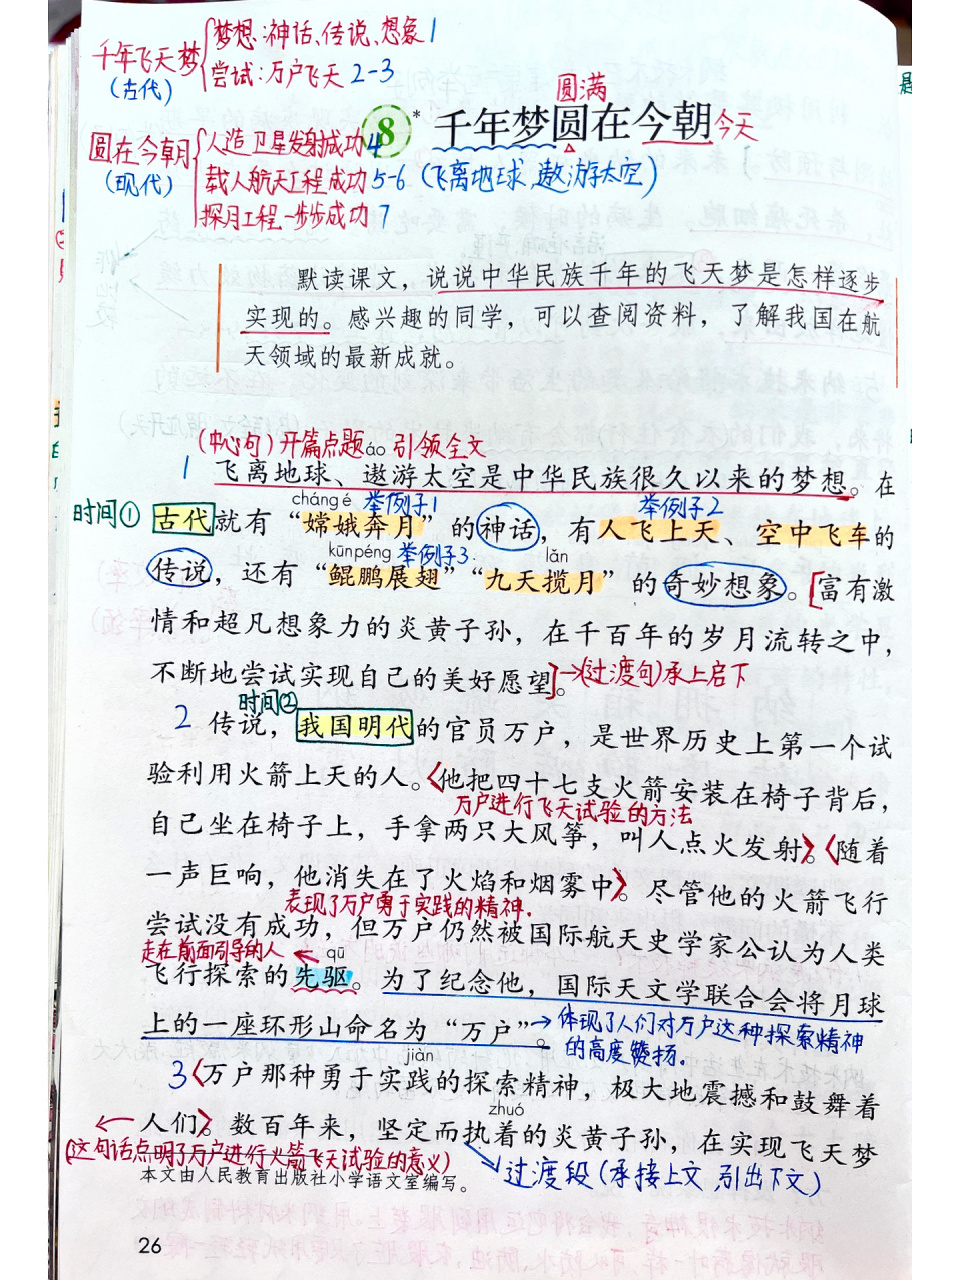 千年飞天梦
(古代)
梦想:神话、传说、想象1
尝试:万户飞天 2-3
圆满
8* 千年梦圆在今朝
今天
圆在今朝
(现代)
人造卫星发射成功4
载人航天工程成功5-6 (飞离地球 遨游太空)
探月工程一步步成功7
默读课文，说说中华民族千年的飞天梦是怎样逐步
实现的。感兴趣的同学，可以查阅资料，了解我国在航
天领域的最新成就。
(中心句) 开篇点题 引领全文
áo
1 飞离地球、遨游太空是中华民族很久以来的梦想。在
cháng é 举例子1 举例子2
时间①
古代就有“嫦娥奔月”的神话，有人飞上天、空中飞车的
kūnpéng 举例子3 lǎn
传说，还有“鲲鹏展翅”“九天揽月”的奇妙想象。[富有激
情和超凡想象力的炎黄子孙，在千百年的岁月流转之中，
不断地尝试实现自己的美好愿望]。→(过渡句)承上启下
时间②
2 传说，我国明代的官员万户，是世界历史上第一个试
验利用火箭上天的人。〈他把四十七支火箭安装在椅子背后，
万户进行飞天试验的方法
自己坐在椅子上，手拿两只大风筝，叫人点火发射〉。〈随着
一声巨响，他消失在了火焰和烟雾中〉。尽管他的火箭飞行
表现了万户勇于实践的精神.
尝试没有成功，但万户仍然被国际航天史学家公认为人类
走在前面引导的人 ← qū
飞行探索的先驱。为了纪念他，国际天文学联合会将月球
上的一座环形山命名为“万户”。
→体现了人们对万户这种探索精神
的高度赞扬.
jiàn
3〈万户那种勇于实践的探索精神，极大地震撼和鼓舞着
zhuó
人们〉。数百年来，坚定而执着的炎黄子孙，在实现飞天梦
(这句话点明了万户进行火箭飞天试验的意义)
过渡段(承接上文 引出下文)
本文由人民教育出版社小学语文室编写。
26